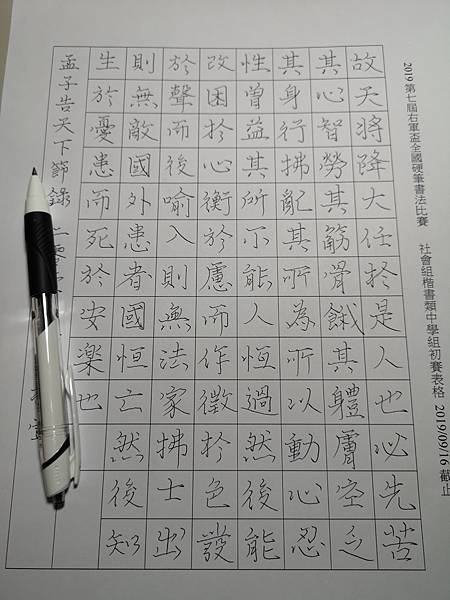 2019 第七屆右軍盃全國硬筆書法比賽 社會組楷書類中學組初賽表格 2019/09/16 截止
故天將降大任於是人也必先苦
其心智勞其筋骨餓其體膚空乏
其身行拂亂其所為所以動心忍
性曾益其所不能人恆過然後能
改困於心衡於慮而作徵於色發
於聲而後喻入則無法家拂士出
則無敵國外患者國恆亡然後知
生於憂患而死於安樂也
孟子告天下節錄 二零